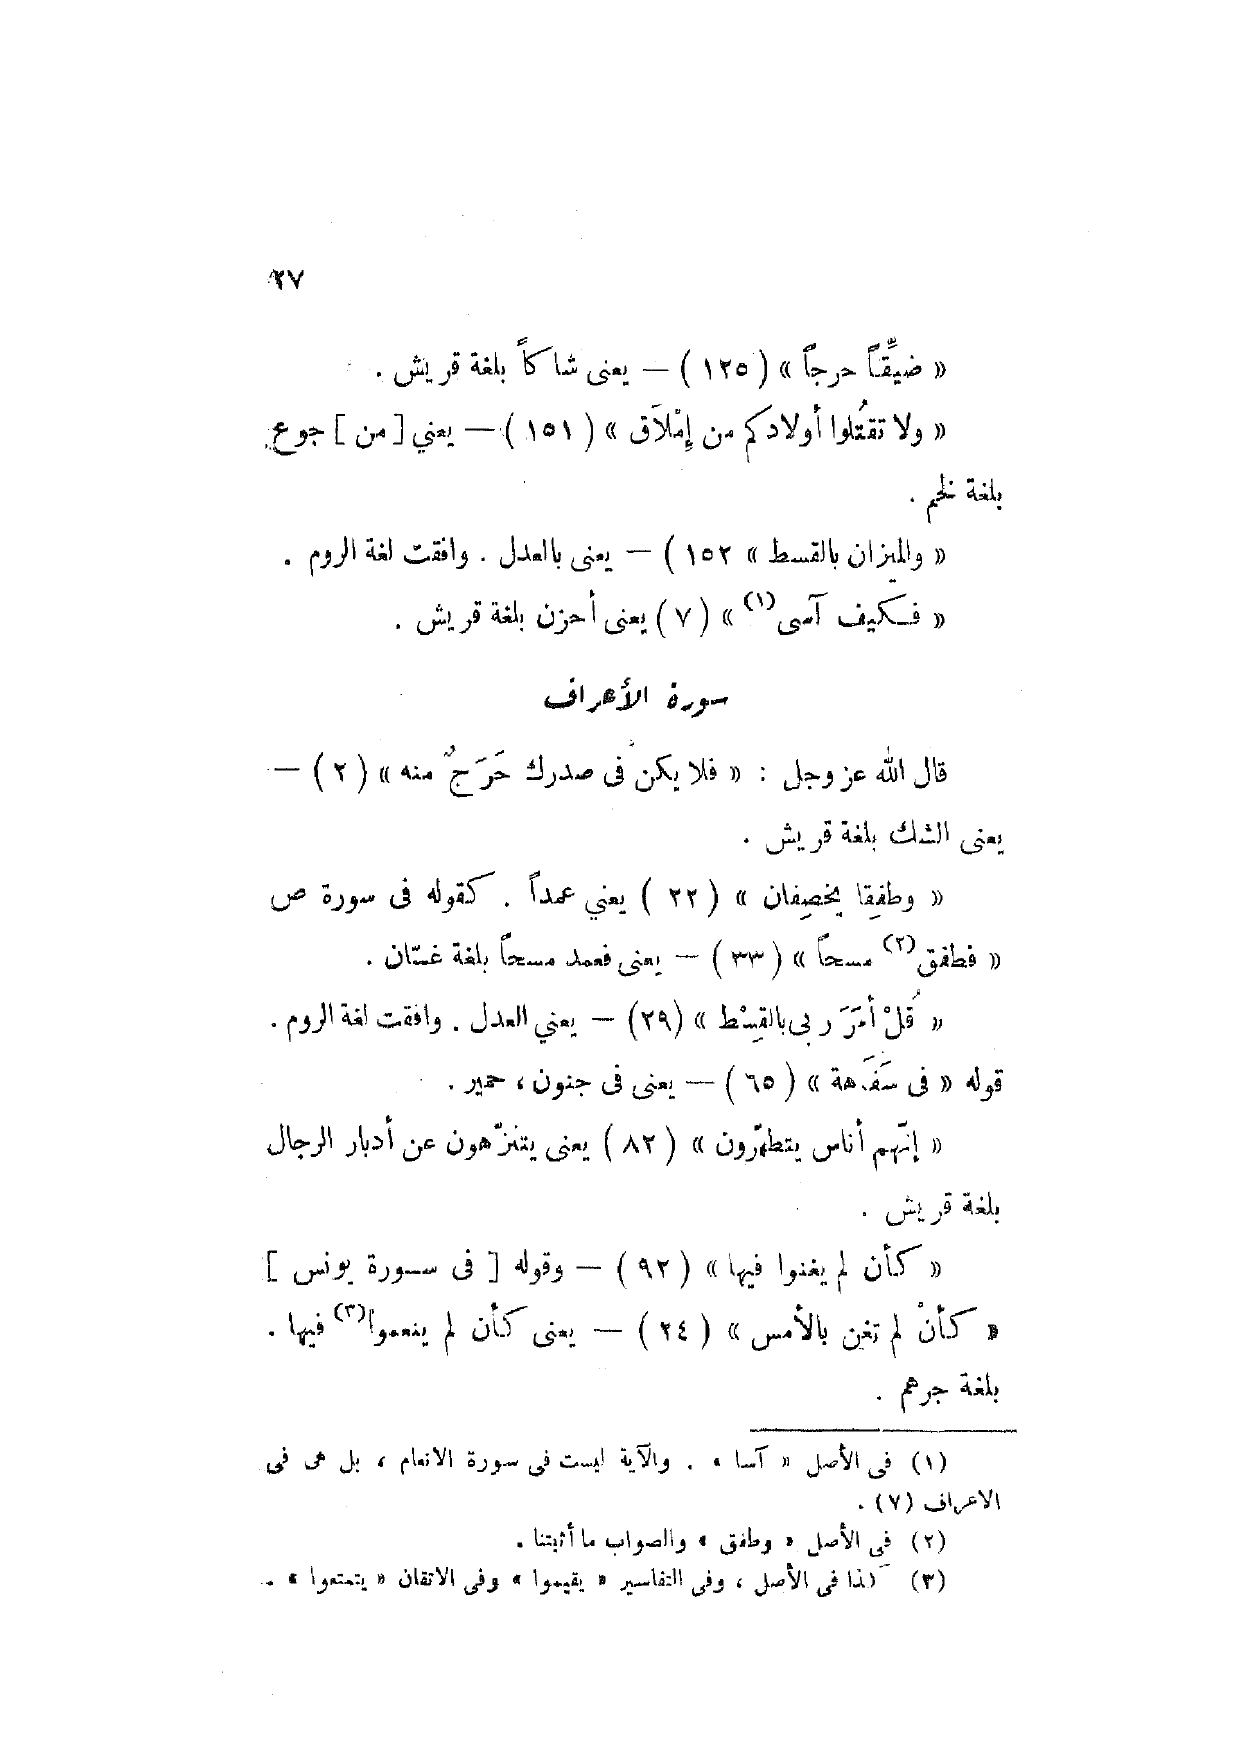 ٢٧
« ضيِّقاً حرجاً » ( ١٢٥ ) — يعنى شاكاً بلغة قريش .
« ولا تقتُلوا أولادكم من إمْلَاق » ( ١٥١ ) — يعني [ من ] جوع
بلغة لخم .
« والميزان بالقسط » ١٥٢ ) — يعنى بالعدل . وافقت لغة الروم .
« فكيف آسى(١) » ( ٧ ) يعنى أحزن بلغة قريش .
سورة الأعراف
قال الله عز وجل : « فلا يكن فى صدرك حَرَجٌ منه » ( ٢ ) —
يعنى الشك بلغة قريش .
« وطفِقا يخصِفان » ( ٢٢ ) يعني عمداً . كقوله فى سورة ص
« فطفق(٢) مسحاً » ( ٣٣ ) — يعنى فعمد مسحاً بلغة غسّان .
« قُلْ أمَرَ ربى بالقِسْط » (٢٩) — يعني العدل . وافقت لغة الروم .
قوله « فى سَفَاهة » ( ٦٥ ) — يعنى فى جنون ، حمير .
« إنّهم أناس يتطهّرون » ( ٨٢ ) يعنى يتنزّهون عن أدبار الرجال
بلغة قريش .
« كأن لم يغنوا فيها » ( ٩٢ ) — وقوله [ فى سورة يونس ]
« كأنْ لم تغن بالأمس » ( ٢٤ ) — يعنى كأن لم ينعموا(٣) فيها .
بلغة جرهم .
(١) فى الأصل « آسا » . والآية ليست فى سورة الانعام ، بل هى فى
الاعراف (٧) .
(٢) فى الأصل « وطفق » والصواب ما أثبتنا .
(٣) كذا فى الأصل ، وفى التفاسير « يقيموا » وفى الاتقان « يتمتعوا » .